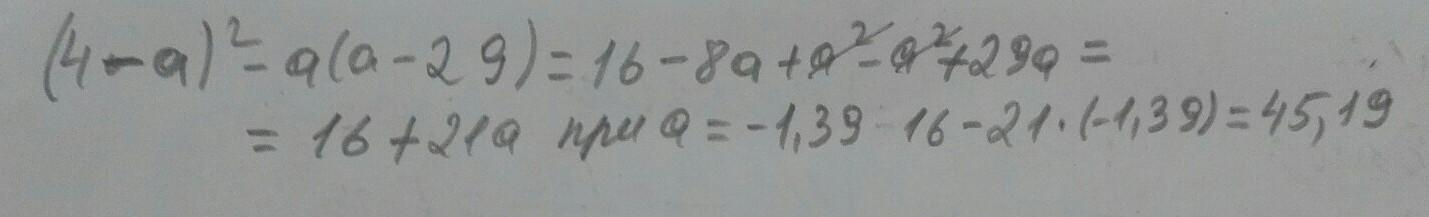 (4-a)² - a(a-29) = 16 - 8a + a² - a² + 29a =
= 16 + 21a при a = -1,39 16 - 21·(-1,39) = 45,19